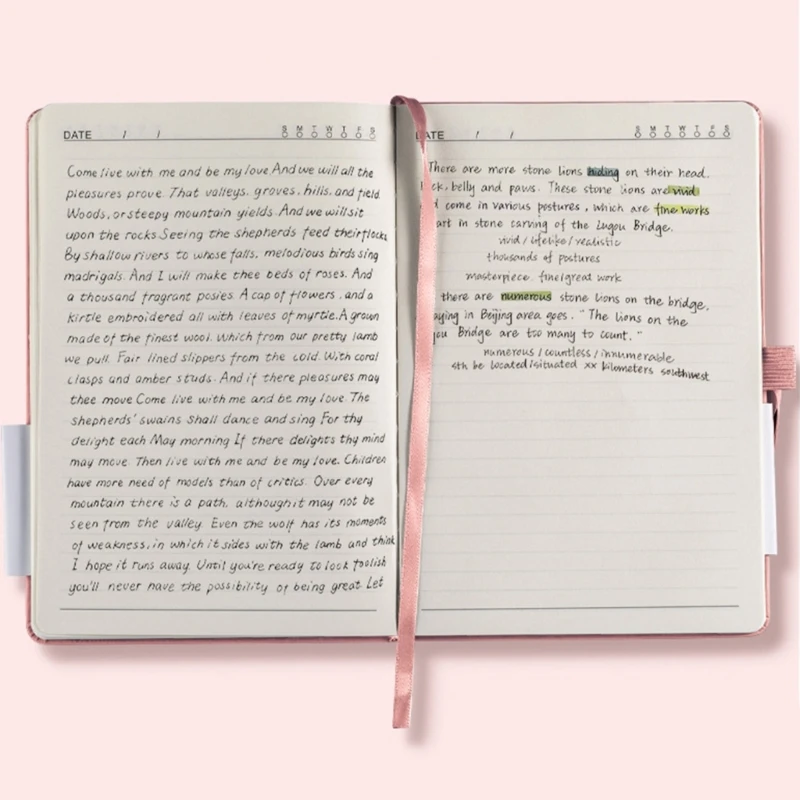 DATE / / S M T W T F S
Come live with me and be my love. And we will all the
pleasures prove. That valleys, groves, hills, and field
Woods, or steepy mountain yields. And we will sit
upon the rocks. Seeing the shepherds feed their flocks
By shallow rivers to whose falls, melodious birds sing
madrigals. And I will make thee beds of roses. And
a thousand fragrant posies. A cap of flowers, and a
kirtle embroidered all with leaves of myrtle. A gown
made of the finest wool. Which from our pretty lamb
we pull. Fair lined slippers from the cold. With coral
clasps and amber studs. And if there pleasures may
thee move Come live with me and be my love. The
shepherds' swains Shall dance and sing For thy
delight each May morning If there delights thy mind
may move. Then live with me and be my love. Children
have more need of models than of critics. Over every
mountain there is a path, although it may not be
seen from the valley. Even the wolf has its moments
of weakness, in which it sides with the lamb and think
I hope it runs away. Until you're ready to look foolish
you'll never have the possibility of being great Let
DATE / / S M T W T F S
There are more stone lions hiding on their head.
belly and paws. These stone lions are vivid
come in various postures, which are fine works
art in stone carving of the Lugou Bridge.
vivid / lifelike / realistic
thousands of postures
masterpiece. fine/great work
there are numerous stone lions on the bridge,
aying in Beijing area goes. "The lions on the
Bridge are too many to count."
numerous / countless / innumerable
sth be located/situated xx kilometers southwest